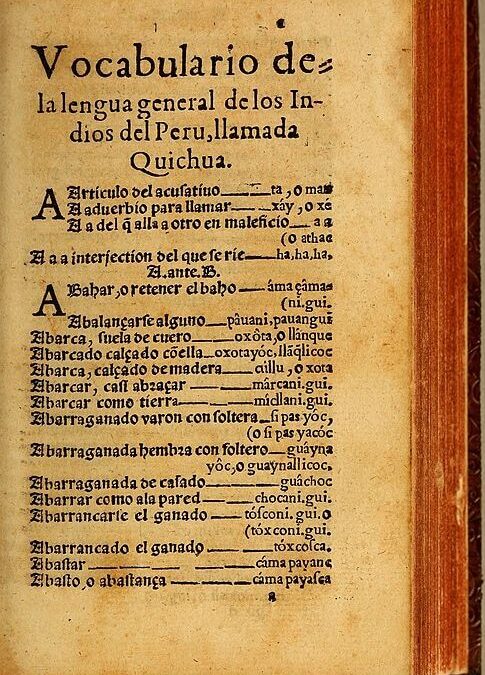 Vocabulario de-
la lengua general de los In-
dios del Peru, llamada
Quichua.
A Articulo del acusatiuo——ta, o man
A aduerbio para llamar——xáy, o xé
A a del q̃ alla a otro en maleficio—a a
(o athac
A a a interjection del que se rie—ha, ha, ha.
A. ante. B.
ABahar, o retener el baho——áma çáma=
(ni. gui.
Abalançarse alguno—páuani, pauangui
Abarca, suela de cuero——oxòta, o llánque
Abarcado calçado cõella—oxotayóc, llãqlicoc
Abarca, calçado de madera——cúllu, o xota
Abarcar, casi abraçar——márcani. gui.
Abarcar como tierra——mícllani. gui.
Abarraganado varon con soltera—si pas yóc,
(o si pas yacóc
Abarraganada hembra con soltero—guáyna
yôc, o guaynallicoc.
Abarraganada de casado——guáchoc
Abarrar como ala pared————chocani. gui.
Abarrancarse el ganado——tósconi. gui. o
(tóxconi. gui.
Abarrancado el ganado————tóxcosca.
Abastar————————cáma payanc
Abasto, o abastança————cáma payasca
a